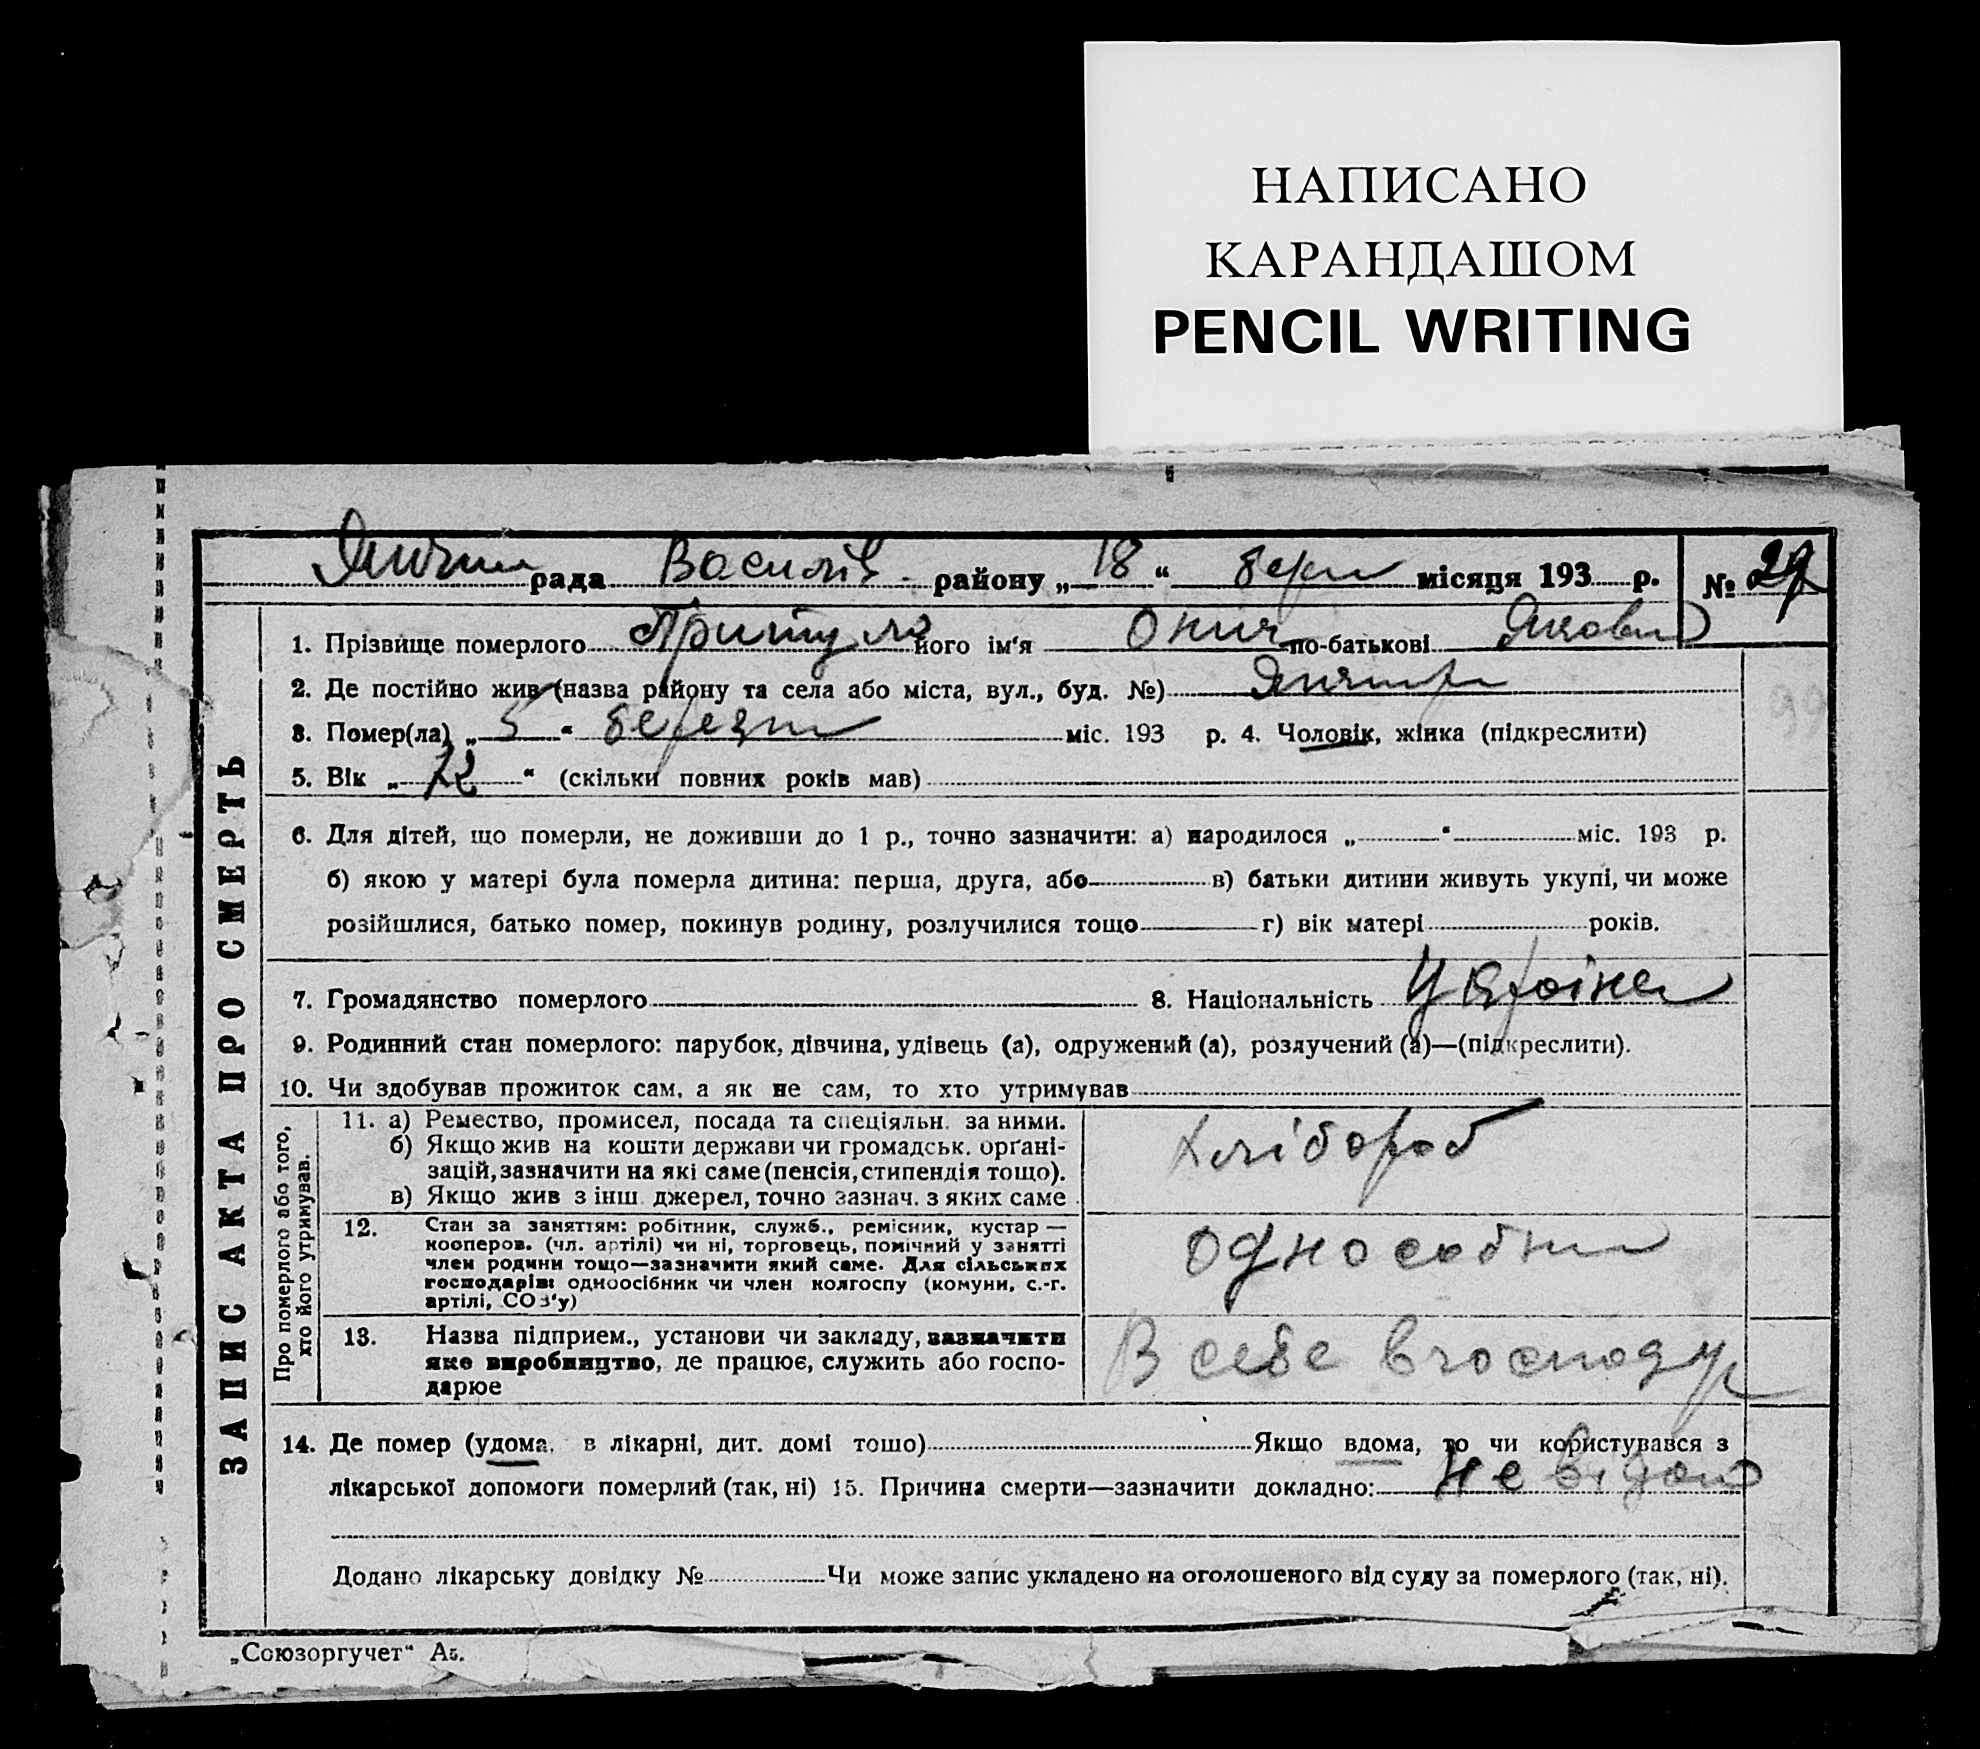 НАПИСАНО
КАРАНДАШОМ
PENCIL WRITING
рада Василів. району „18“ берез місяця 193 р. № 29
1. Прізвище померлого Притула його ім‘я Онис по-батькові Якович
2. Де постійно жив (назва району та села або міста, вул., буд. №)
3. Помер(ла) „5“ березня міс. 193 р. 4. Чоловік, жінка (підкреслити)
5. Вік „72“ (скільки повних років мав)
6. Для дітей, що померли, не доживши до 1 р., точно зазначити: а) народилося „ “ міс. 193 р.
б) якою у матері була померла дитина: перша, друга, або в) батьки дитини живуть укупі, чи може
розійшлися, батько помер, покинув родину, розлучилися тощо г) вік матері років.
7. Громадянство померлого 8. Національність Україне
9. Родинний стан померлого: парубок, дівчина, удівець (а), одружений (а), розлучений (а)—(підкреслити).
10. Чи здобував прожиток сам, а як не сам, то хто утримував
ЗАПИС АКТА ПРО СМЕРТЬ
Про померлого або того,
хто його утримував.
11. а) Ремество, промисел, посада та спеціяльн. за ними.
б) Якщо жив на кошти держави чи громадськ. орґані-
зацій, зазначити на які саме (пенсія, стипендія тощо).
в) Якщо жив з інш. джерел, точно зазнач. з яких саме
Хлібороб
12. Стан за заняттям: робітник, служб., ремісник, кустар —
кооперов. (чл. артілі) чи ні, торговець, помічний у занятті
член родини тощо—зазначити який саме. Для сільських
господарів: одноосібник чи член колгоспу (комуни, с.-г.
артілі, СОЗ‘у)
однособни
13. Назва підприєм., установи чи закладу, зазначити
яке виробництво, де працює, служить або госпо-
дарює
В себе в господар
14. Де помер (удома, в лікарні, дит. домі тошо) Якщо вдома, то чи користувався з
лікарської допомоги померлий (так, ні) 15. Причина смерти—зазначити докладно: Не відомо
Додано лікарську довідку № Чи може запис укладено на оголошеного від суду за померлого (так, ні).
„Союзоргучет“ А5.